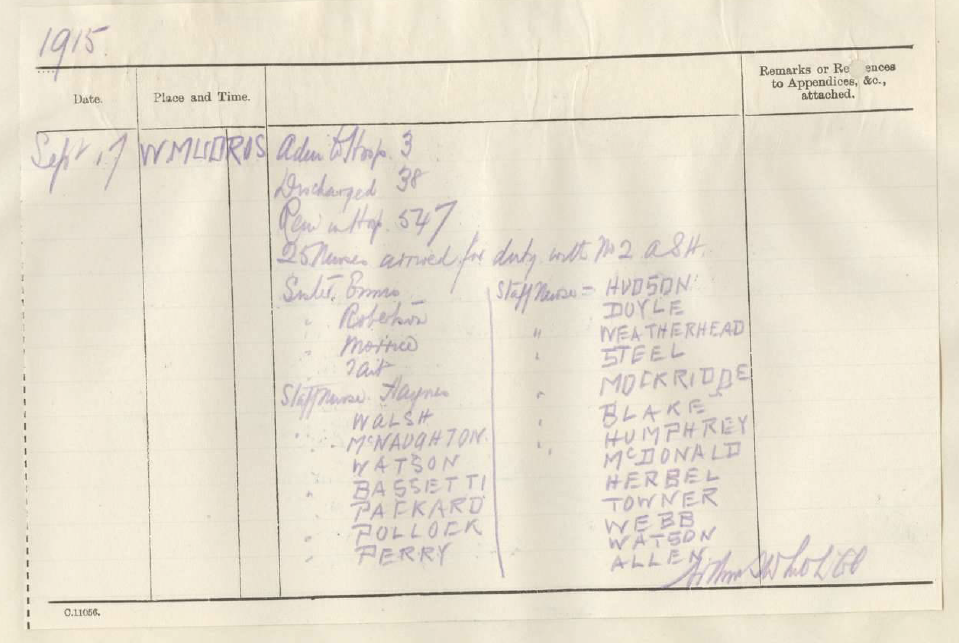 1915.
Date.
Place and Time.
Remarks or References
to Appendices, &c.,
attached.
Sept 17
MUDROS
Adm to Hosp. 3
Discharged 38
Rem in Hosp. 547
25 Nurses arrived for duty with No 2 ASH.
Sister.
" Robertson
" Morrice
" Tait
Staff Nurse. Haynes
" WALSH
" McNAUGHTON.
" WATSON
" BASSETTI
" PACKARD
" POLLOCK
" PERRY
Staff Nurse - HUDSON
DOYLE
" WEATHERHEAD
" STEEL
" MOCKRIDGE
" BLAKE
" HUMPHREY
" McDONALD
HERBEL
TOWNER
WEBB
WATSON
ALLEN
C.11056.